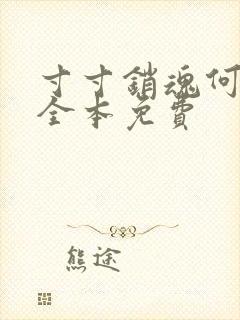 寸寸銷魂何
全本免費
熊途